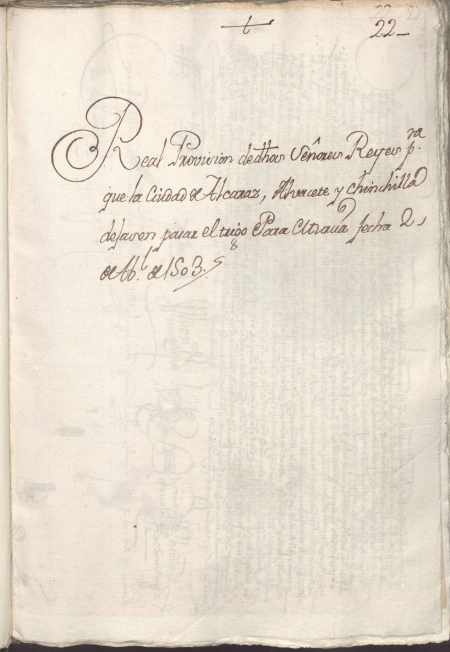 22
Real Provision de dhos Señores Reyes pra
que la Ciudad de Alcaraz, Alvacete y chinchilla
dejasen pasar el trigo Para fecha 2
de Abl de 1503.